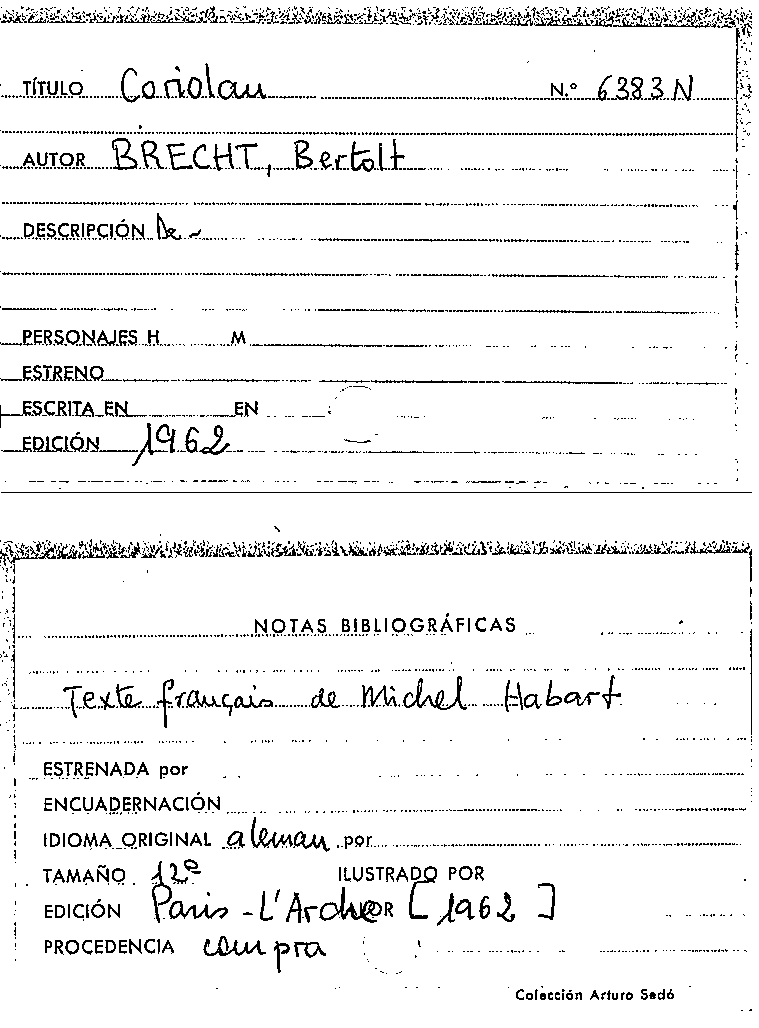 TÍTULO Coriolan N.º 6383 N
AUTOR BRECHT, Bertolt
DESCRIPCIÓN De -
PERSONAJES H M
ESTRENO
ESCRITA EN EN
EDICIÓN 1962
NOTAS BIBLIOGRÁFICAS
Texte français de Michel Habart
ESTRENADA por
ENCUADERNACIÓN
IDIOMA ORIGINAL aleman por
TAMAÑO 12º ILUSTRADO POR
EDICIÓN Paris - L'Arche [1962]
PROCEDENCIA compra
Colección Arturo Sedó